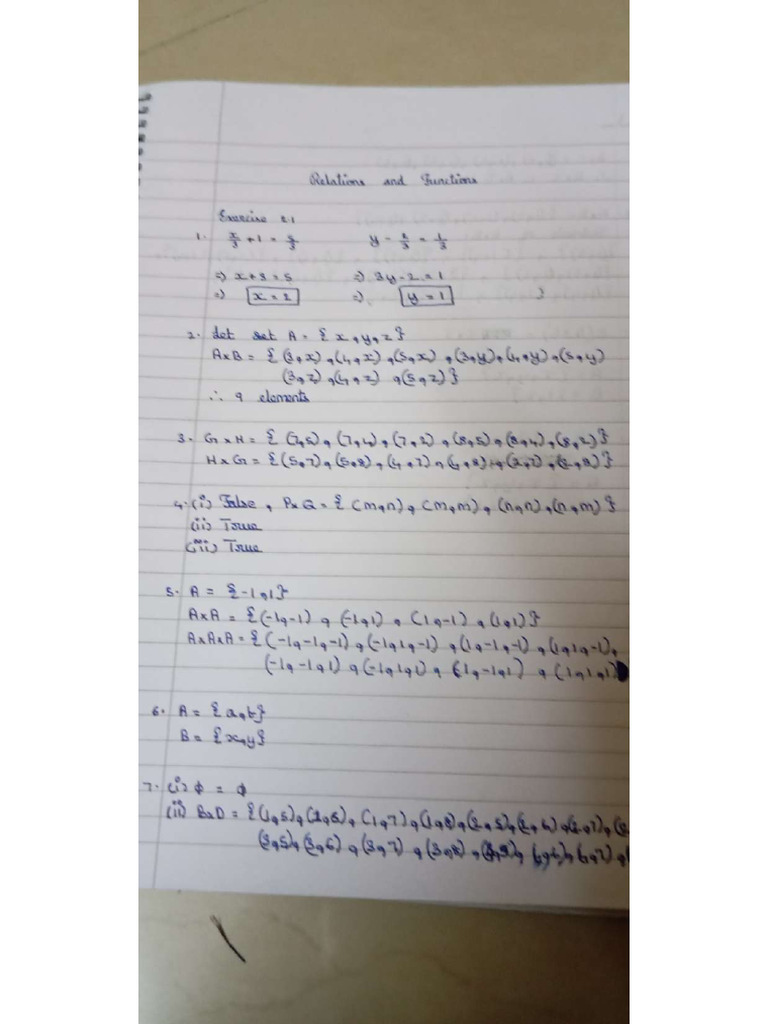 Relations and Functions
Exercise 2.1
1. x/3 + 1 = 5/3    y - 2/3 = 1/3
=) x+3 = 5    =) 3y-2 = 1
=) x = 2    =) y = 1
2. let set A = {x,y,z}
AxB = {(3,x),(4,x),(5,x),(3,y),(4,y),(5,y)
(3,z),(4,z),(5,z)}
∴ 9 elements
3. GxH = {(7,5),(7,4),(7,2),(8,5),(8,4),(8,2)}
HxG = {(5,7),(5,8),(4,7),(4,8),(2,7),(2,8)}
4. (i) False, PxQ = {(m,n),(m,m),(n,n),(n,m)}
(ii) True
(iii) True
5. A = {-1,1}
AxA = {(-1,-1),(-1,1),(1,-1),(1,1)}
AxAxA = {(-1,-1,-1),(-1,1,-1),(1,-1,-1),(1,1,-1),
(-1,-1,1),(-1,1,1),(1,-1,1),(1,1,1)
6. A = {a,b}
B = {x,y}
7. (i) ϕ = ϕ
(ii) BxD = {(1,5),(1,6),(1,7),(1,8),(2,5),(2,6),(2,7),(2
(3,5),(3,6),(3,7),(3,8),(4,5),(4,6),(4,7),(